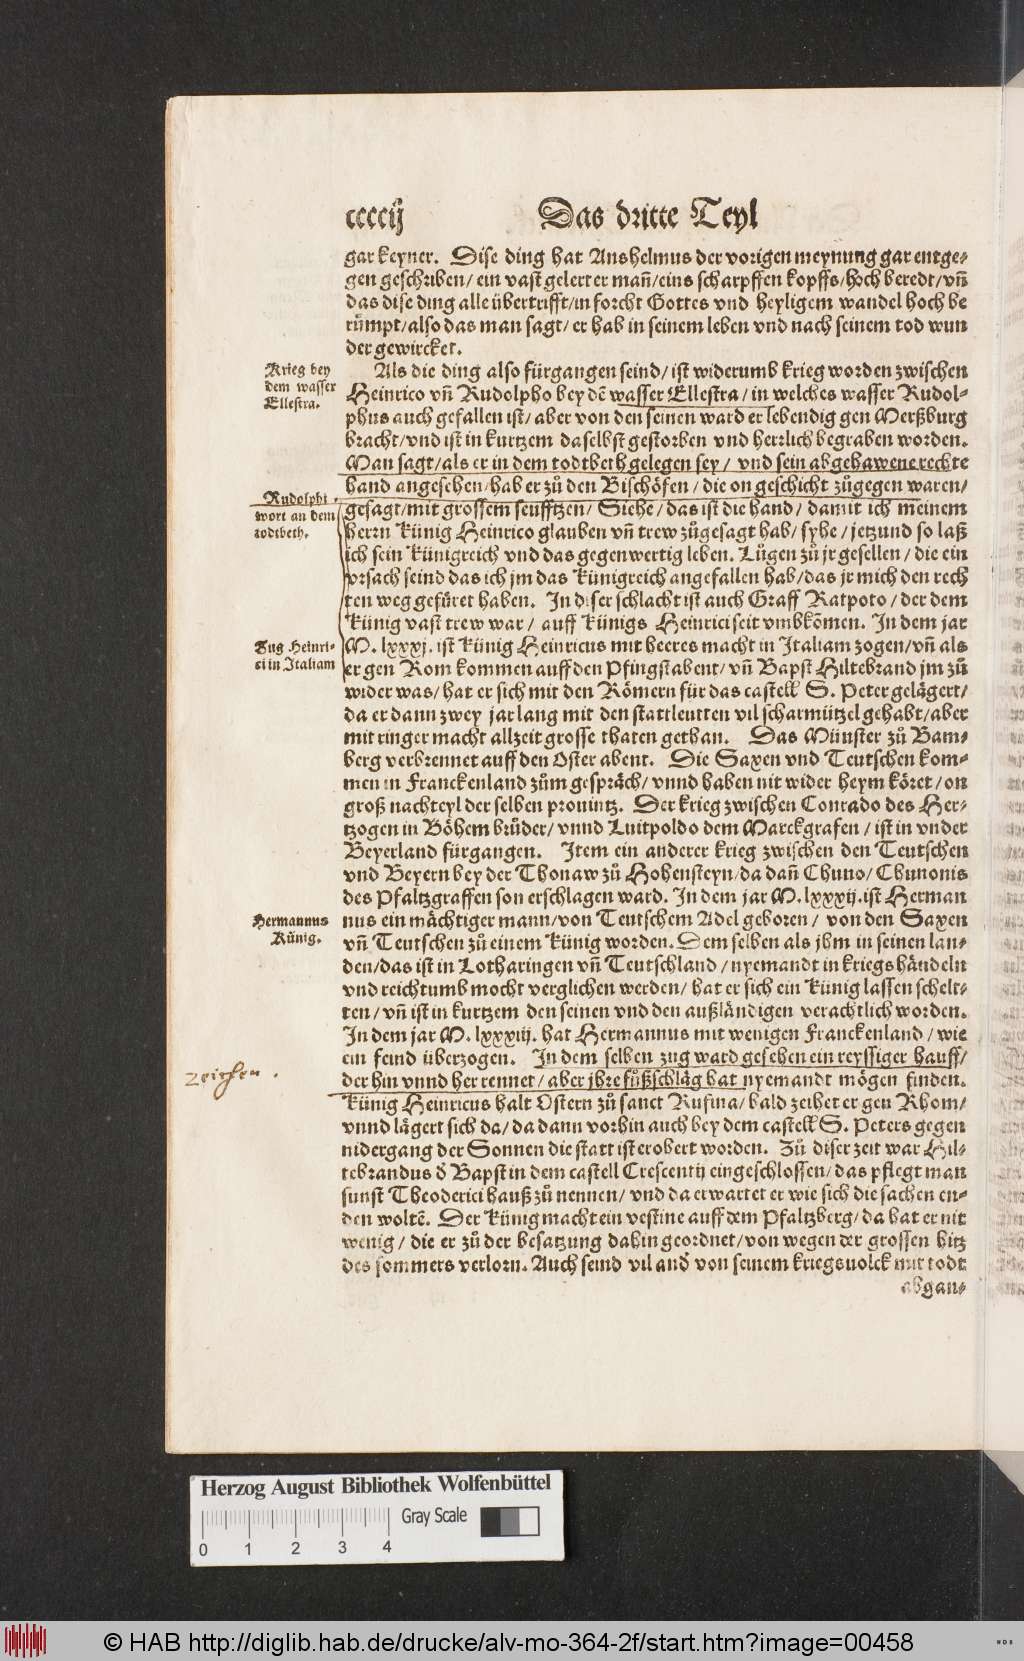 ccccij Das dritte Teyl
gar keyner. Dise ding hat Anshelmus der vorigen meynung gar entge-
gen geschriben/ ein vast gelerter mañ/ eins scharpffen kopffs/ hoch beredt/ vñ
das dise ding alle übertrifft/ in forcht Gottes vnd heyligem wandel hoch be
rümpt/ also das man sagt/ er hab in seinem leben vnd nach seinem tod wun
der gewircket.
Krieg bey
dem wasser
Ellestra.
Als die ding also fürgangen seind/ ist widerumb krieg worden zwischen
Heinrico vñ Rudolpho bey dē wasser Ellestra/ in welches wasser Rudol-
phus auch gefallen ist/ aber von den seinen ward er lebendig gen Merßburg
bracht/ vnd ist in kurtzem daselbst gestorben vnd herrlich begraben worden.
Man sagt/ als er in dem todtbeth gelegen sey/ vnd sein abgehawene rechte
hand angesehen/ hab er zů den Bischöfen/ die on geschicht zůgegen waren/
Rudolphi
wort an dem
todtbeth.
gesagt/ mit grossem seufftzen/ Siehe/ das ist die hand/ damit ich meinem
herrn Künig Heinrico glauben vñ trew zůgesagt hab/ syhe/ jetzund so laß
ich sein Künigreich vnd das gegenwertig leben. Lůgen zů jr gesellen/ die ein
vrsach seind das ich jm das Künigreich angefallen hab/ das jr mich den rech
ten weg gefüret haben. In diser schlacht ist auch Graff Ratpoto/ der dem
Künig vast trew war/ auff Künigs Heinrici seit vmbkōmen. In dem jar
Zug Heinri-
ci in Italiam
M. lxxxj. ist Künig Heinricus mit heeres macht in Italiam zogen/ vñ als
er gen Rom kommen auff den Pfingstabent/ vñ Bapst Hiltebrand jm zů
wider was/ hat er sich mit den Römern für das castell S. Peter gelägert/
da er dann zwey jar lang mit den stattleutten vil scharmützel gehabt/ aber
mit ringer macht allzeit grosse thaten gethan. Das Münster zů Bam-
berg verbrennet auff den Oster abent. Die Saxen vnd Teutschen kom-
men in Franckenland zům gespräch/ vnnd haben nit wider heym köret/ on
groß nachteyl der selben prouintz. Der krieg zwischen Conrado des Her-
tzogen in Böhem brůder/ vnnd Luitpoldo dem Marckgrafen/ ist in vnder
Beyerland fürgangen. Item ein anderer krieg zwischen den Teutschen
vnd Beyern bey der Thonaw zů Hohensteyn/ da dañ Chuno/ Chunonis
des Pfaltzgraffen son erschlagen ward. In dem jar M. lxxxij. ist Herman
Hermannus
Künig.
nus ein mächtiger mann/ von Teutschem Adel geboren/ von den Saxen
vñ Teutschen zů einem Künig worden. Dem selben als jhm in seinen lan-
den/ das ist in Lotharingen vñ Teutschland/ nyemandt in kriegs händeln
vnd reichtumb mocht verglichen werden/ hat er sich ein Künig lassen schelt-
ten/ vñ ist in kurtzem den seinen vnd den außländigen verachtlich worden.
In dem jar M. lxxxiij. hat Hermannus mit wenigen Franckenland/ wie
ein feind überzogen. In dem selben zug ward gesehen ein reyssiger hauff/
zeichen.
der hin vnnd her rennet/ aber jhre fůßschläg hat nyemandt mögen finden.
Künig Heinricus halt Ostern zů sanct Rufina/ bald zeihet er gen Rhom/
vnnd lägert sich da/ da dann vorhin auch bey dem castell S. Peters gegen
nidergang der Sonnen die statt ist erobert worden. Zů diser zeit war Hil-
tebrandus ð Bapst in dem castell Crescentij eingeschlossen/ das pflegt man
sunst Theoderici hauß zů nennen/ vnd da erwartet er wie sich die sachen en-
den woltē. Der Künig macht ein vestine auff dem Pfaltzberg/ da hat er nit
wenig/ die er zů der besatzung dahin geordnet/ von wegen der grossen hitz
des sommers verlorn. Auch seind vil and̛ von seinem kriegsuolck mit todt
abgan-
Herzog August Bibliothek Wolfenbüttel
0 1 2 3 4
Gray Scale
© HAB http://diglib.hab.de/drucke/alv-mo-364-2f/start.htm?image=00458